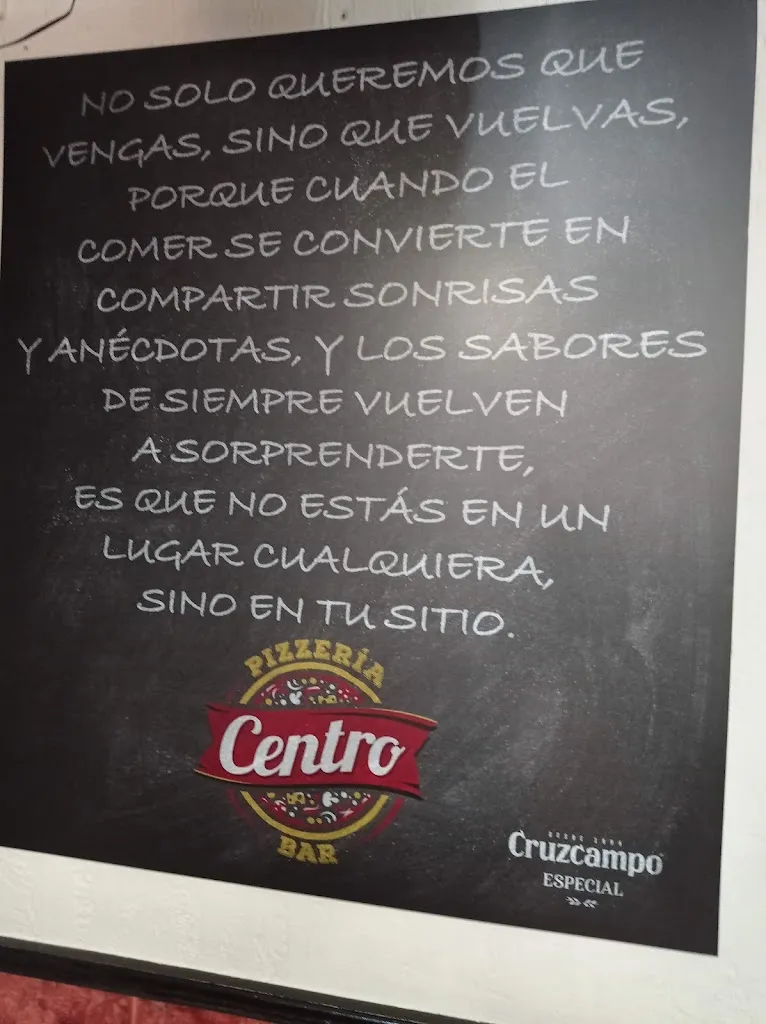 NO SOLO QUEREMOS QUE
VENGAS, SINO QUE VUELVAS,
PORQUE CUANDO EL
COMER SE CONVIERTE EN
COMPARTIR SONRISAS
Y ANÉCDOTAS, Y LOS SABORES
DE SIEMPRE VUELVEN
A SORPRENDERTE,
ES QUE NO ESTÁS EN UN
LUGAR CUALQUIERA,
SINO EN TU SITIO.
PIZZERÍA
Centro
BAR
DESDE 1904
Cruzcampo
ESPECIAL